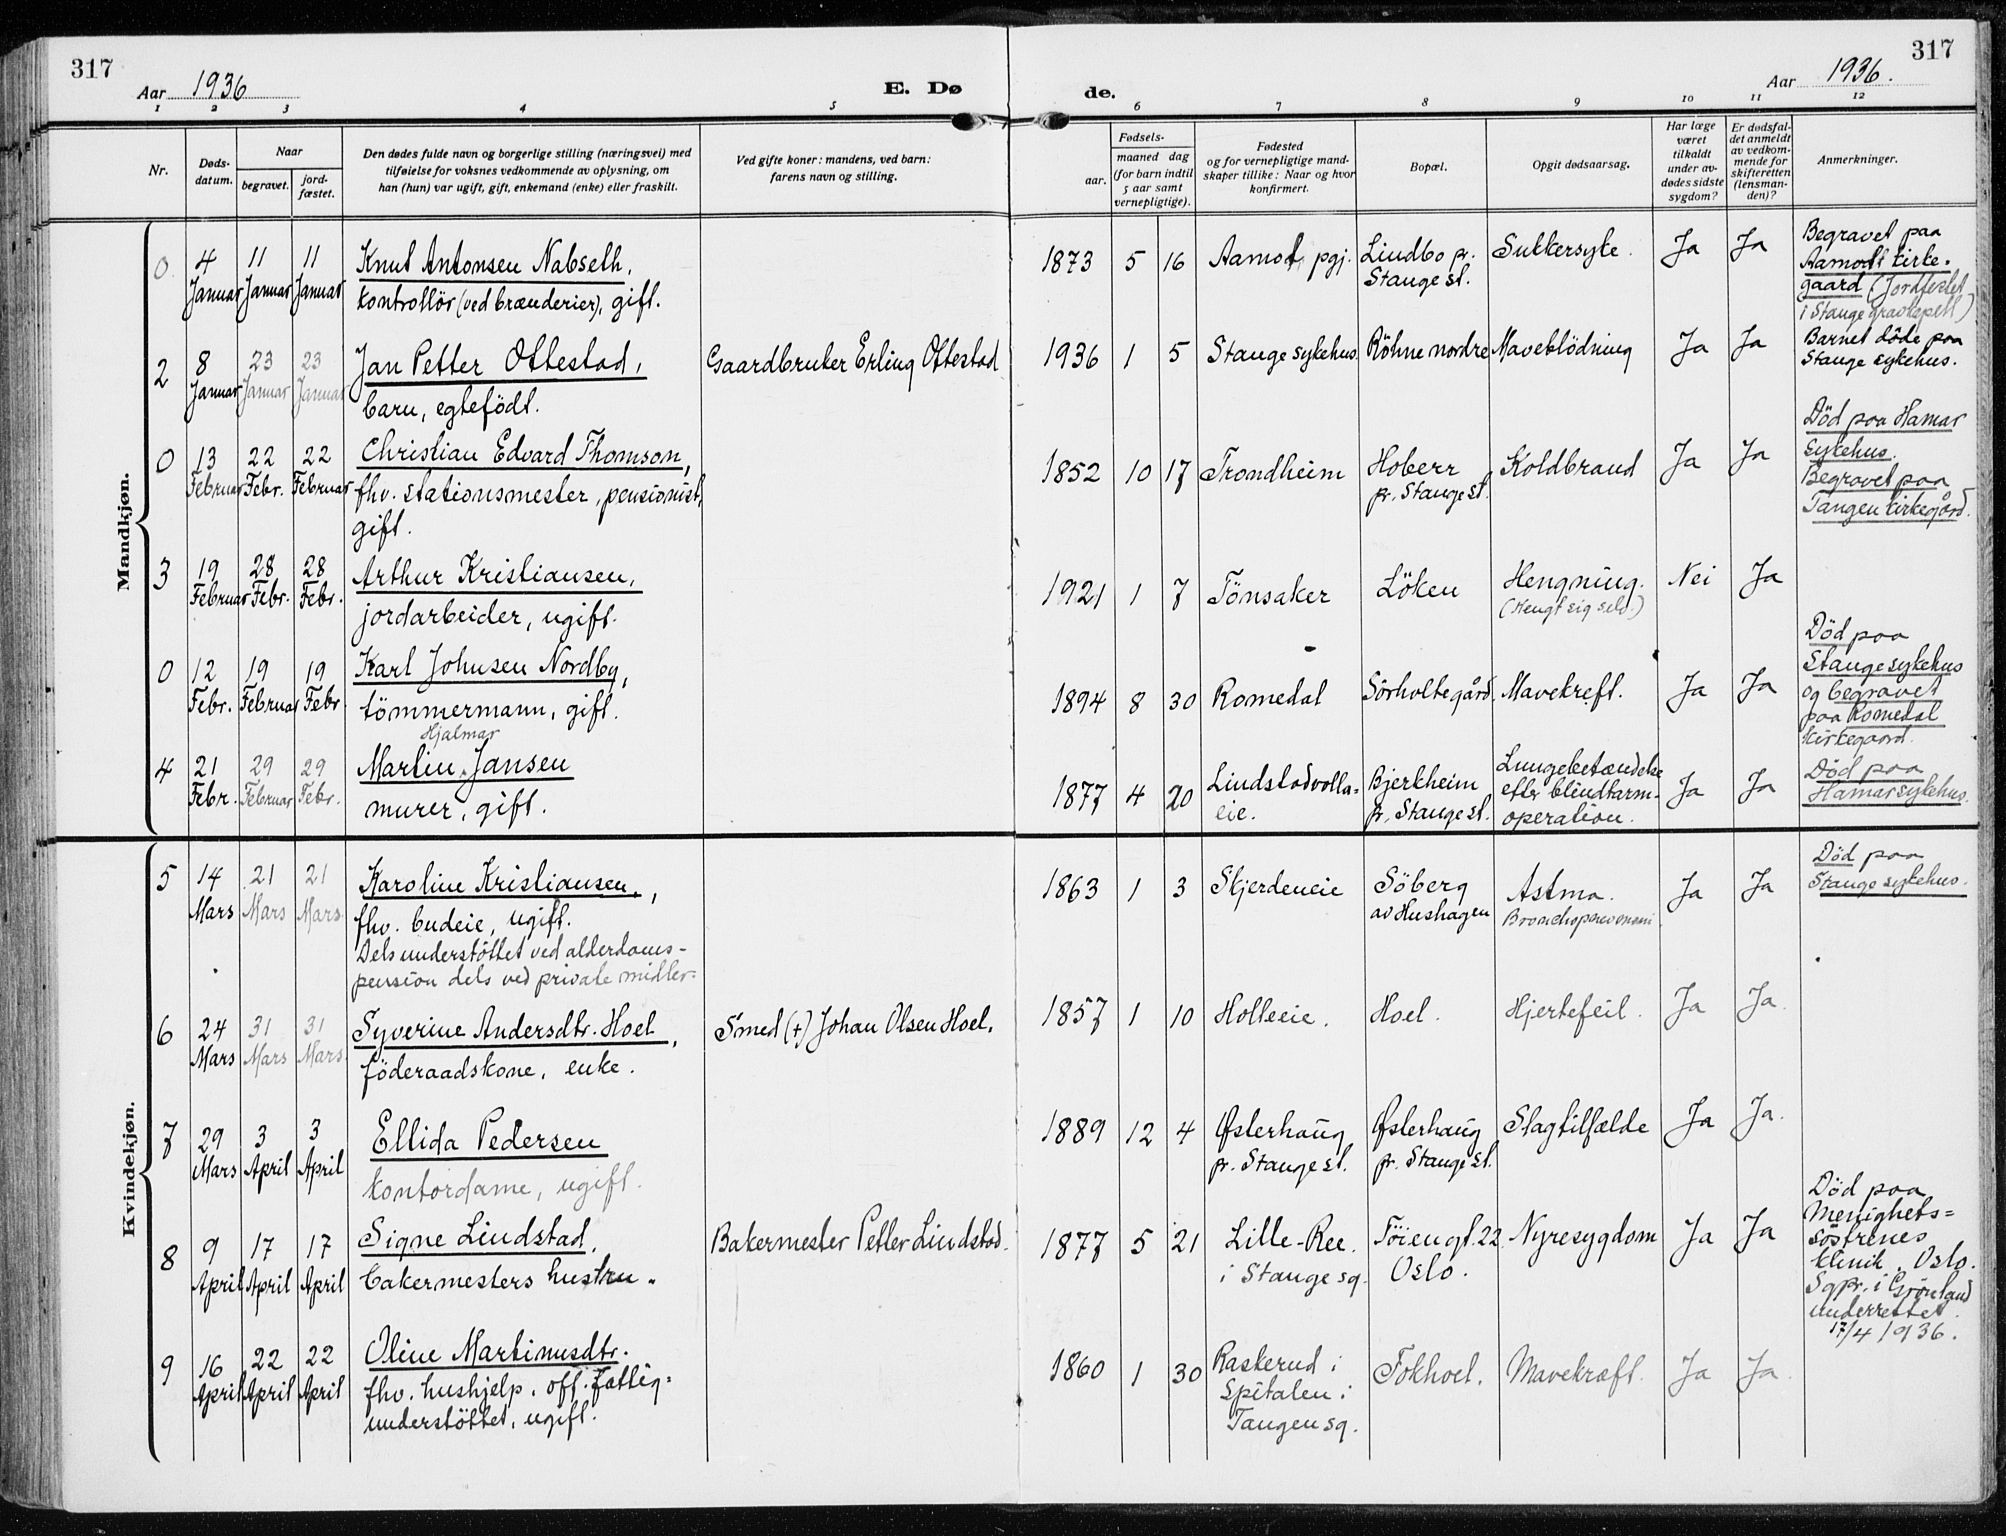 317
317
Aar 1936
E. Dø
de.
Aar 1936.
1 2 3 4 5 6 7 8 9 10 11 12
Nr.
Døds-
datum.
Naar
begravet.
jord-
fæstet.
Den dødes fulde navn og borgerlige stilling (næringsvei) med
tilføielse for voksnes vedkommende av oplysning, om
han (hun) var ugift, gift, enkemand (enke) eller fraskilt.
Ved gifte koner: mandens, ved barn:
farens navn og stilling.
Fødsels-
aar.
maaned dag
(for barn indtil
5 aar samt
vernepligtige).
Fødested
og for vernepligtige mand-
skaper tillike: Naar og hvor
konfirmert.
Bopæl.
Opgit dødsaarsag.
Har læge
været
tilkaldt
under av-
dødes sidste
sygdom?
Er dødsfal-
det anmeldt
av vedkom-
mende for
skifteretten
(lensman-
den)?
Anmerkninger.
Mandkjøn.
0 4 Januar 11 Januar 11 Januar
Knut Antonsen Nabseth,
kontrollör (ved brænderier), gift.
1873 5 16 Aamot pgj. Lindbo pr.
Stange st.
Sukkersyke. Ja Ja
Begravet paa
Aamodt kirke-
gaard (Jordfestet
i Stange gravkapell)
2 8 Januar 23 Januar 23 Januar
Jan Petter Ottestad,
barn, egtefödt.
Gaardbruker Erling Ottestad
1936 1 5 Stange sykehus. Röhne nordre Maveblödning Ja Ja
Barnet döde paa
Stange sykehus.
0 13 Februar 22 Febr. 22 Februar
Christian Edvard Thomson,
fhv. stationsmester, pensionist,
gift.
1852 10 17 Trondheim Hoberr
pr. Stange st.
Koldbrand Ja Ja
Död paa Hamar
sykehus.
Begravet paa
Tangen kirkegård.
3 19 Februar 28 Febr. 28 Febr.
Arthur Kristiansen,
jordarbeider, ugift.
1921 1 7 Tönsaker Löken Hengning.
(Hengt sig selv.)
Nei Ja
0 12 Febr. 19 Februar 19 Febr.
Karl Johnsen Nordby,
tömmermann, gift.
1894 8 30 Romedal Sörholtegård. Mavekreft. Ja Ja
Död paa
Stange sykehus
og begravet
paa Romedal
kirkegaard.
4 21 Febr. 29 Februar 29 Febr.
Hjalmar
Martin Jansen
murer, gift.
1877 4 20 Lindstadvolla=
eie.
Bjerkheim
pr. Stange st.
Lungebetændelse
efter blindtarm-
operation.
Ja Ja
Död paa
Hamar sykehus.
Kvindekjøn.
5 14 Mars 21 Mars 21 Mars.
Karoline Kristiansen,
fhv. budeie, ugift.
Dels understöttet ved alderdoms-
pension dels ved private midler=
1863 1 3 Skjerdeneie Söberg
av Hushagen
Astma.
Bronchopneumoni.
Ja Ja
Död paa
Stange sykehus.
6 24 Mars 31 Mars 31 Mars.
Syverine Andersdtr. Hoel,
föderaadskone, enke.
Smed (+) Johan Olsen Hoel.
1857 1 10 Holleeie. Hoel. Hjertefeil. Ja Ja.
7 29 Mars 3 April 3 April
Ellida Pedersen
kontordame, ugift.
1889 12 4 Østerhaug
pr. Stange st.
Østerhaug
pr. Stange st.
Slagtilfælde Ja Ja.
8 9 April 17 April 17 April
Signe Lindstad,
bakermesters hustru.
Bakermester Petter Lindstad.
1877 5 21 Lille-Ree.
i Stange sg.
Töiengt. 22
Oslo.
Nyresygdom Ja Ja
Död paa
Menighets=
söstrenes
klinik, Oslo.
Sgpr. i Grönland
underrettet
17/4 1936.
9 16 April 22 April 22 April
Oline Martinusdtr.
fhv. hushjelp, off. fattig=
understöttet, ugift.
1860 1 30 Raskerud i
Spitalen i
Tangen sg.
Fokhoel. Mavekræft. Ja Ja.